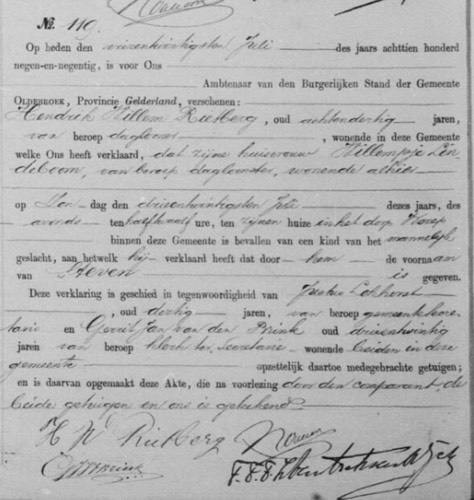 No. 119.
Op heden den vierentwintigsten Juli des jaars achttien honderd
negen-en-negentig, is voor Ons
Ambtenaar van den Burgerlijken Stand der Gemeente
OLDEBROEK, Provincie Gelderland, verschenen:
Hendrik Willem Rietberg, oud achtendertig jaren,
van beroep daglooner, wonende in deze Gemeente
welke Ons heeft verklaard, dat zijne huisvrouw Willempje Lin
deboom, van beroep daglooner, wonende alhier
op Zondag den drieentwintigsten Juli dezes jaars, des
avonds ten half twaalf ure, ten zijnen huize in het dorp
binnen deze Gemeente is bevallen van een kind van het mannelijk
geslacht, aan hetwelk hij verklaard heeft dat door hem de voornaam
van Steven is gegeven.
Deze verklaring is geschied in tegenwoordigheid van Lokhorst
, oud dertig jaren, van beroep gemeentesecre
taris en Gerrit Jan van den Brink oud drieentwintig
jaren van beroep klerk ter Secretarie wonende beiden in deze
gemeente opzettelijk daartoe medegebracht getuigen;
en is daarvan opgemaakt deze Akte, die na voorlezing door den comparant, de
beide getuigen en ons is geteekend.
H W Rietberg